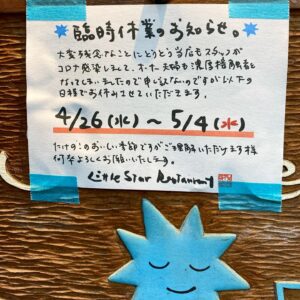 臨時休業のお知らせ。
大変残念なことにとうとう当店もスタッフが
コロナ感染しまして、オーナー夫婦も濃厚接触者と
なってしまいましたので申し訳ないのですが以下の
日程でお休みさせていただきます。
4/26(水)〜5/4(木)
たけのこのおいしい季節ですがご理解いただけます様
何卒よろしくお願いいたします。
Little Star Restaurant